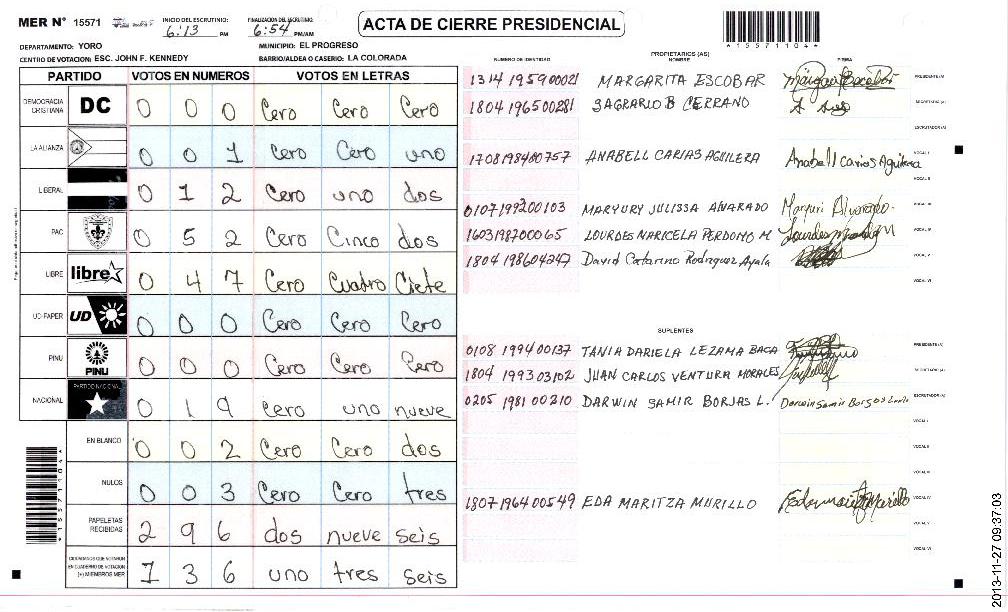 MER N° 15571
INICIO DEL ESCRUTINIO: 6:13 PM
FINALIZACIÓN DEL ESCRUTINIO: 6:54 PM/AM
ACTA DE CIERRE PRESIDENCIAL
*155711044*
DEPARTAMENTO: YORO
MUNICIPIO: EL PROGRESO
CENTRO DE VOTACION: ESC. JOHN F. KENNEDY
BARRIO/ALDEA O CASERIO: LA COLORADA
PARTIDO VOTOS EN NUMEROS VOTOS EN LETRAS
DEMOCRACIA CRISTIANA DC 0 0 0 Cero Cero Cero
LA ALIANZA 0 0 1 Cero Cero uno
LIBERAL 0 1 2 Cero uno dos
PAC 0 5 2 Cero Cinco dos
LIBRE libre 0 4 7 Cero Cuatro Ciete
UD-FAPER UD 0 0 0 Cero Cero Cero
PINU PINU 0 0 0 Cero Cero Cero
NACIONAL PARTIDO NACIONAL 0 1 9 Cero uno nueve
EN BLANCO 0 0 2 Cero Cero dos
NULOS 0 0 3 Cero Cero tres
PAPELETAS RECIBIDAS 2 9 6 dos nueve seis
CIUDADANOS QUE VOTARON EN CUADERNO DE VOTACION (+) MIEMBROS MER 1 3 6 uno tres seis
PROPIETARIOS (AS)
NUMERO DE IDENTIDAD NOMBRE FIRMA
1314 1959 00021 MARGARITA ESCOBAR Margarita Escobar PRESIDENTE(A)
1804 1965 00281 SAGRARIO B CERRANO SECRETARIO (A)
ESCRUTADOR (A)
1708198480757 ANABELL CARIAS AGUILERA Anabell Carias Aguilera VOCAL I
VOCAL II
0107 1992 00103 MARYURY JULISSA ALVARADO Maryuri Alvarado VOCAL III
1603198700065 LOURDES MARICELA PERDOMO M VOCAL IV
1804 198604247 David Catarino Rodriguez Ayala VOCAL V
VOCAL VI
SUPLENTES
0108 1994 00137 TANIA DARIELA LEZAMA BACA PRESIDENTE(A)
1804 1993 03102 JUAN CARLOS VENTURA MORALES SECRETARIO (A)
0205 1981 00210 DARWIN SAMIR BORJAS L. Darwin Samir Borjas ESCRUTADOR(A)
VOCAL I
VOCAL II
VOCAL III
1807 1964 00549 EDA MARITZA MURILLO Eda Maritza Murillo VOCAL IV
VOCAL V
VOCAL VI
*155711044*
2013-11-27 09:37:03